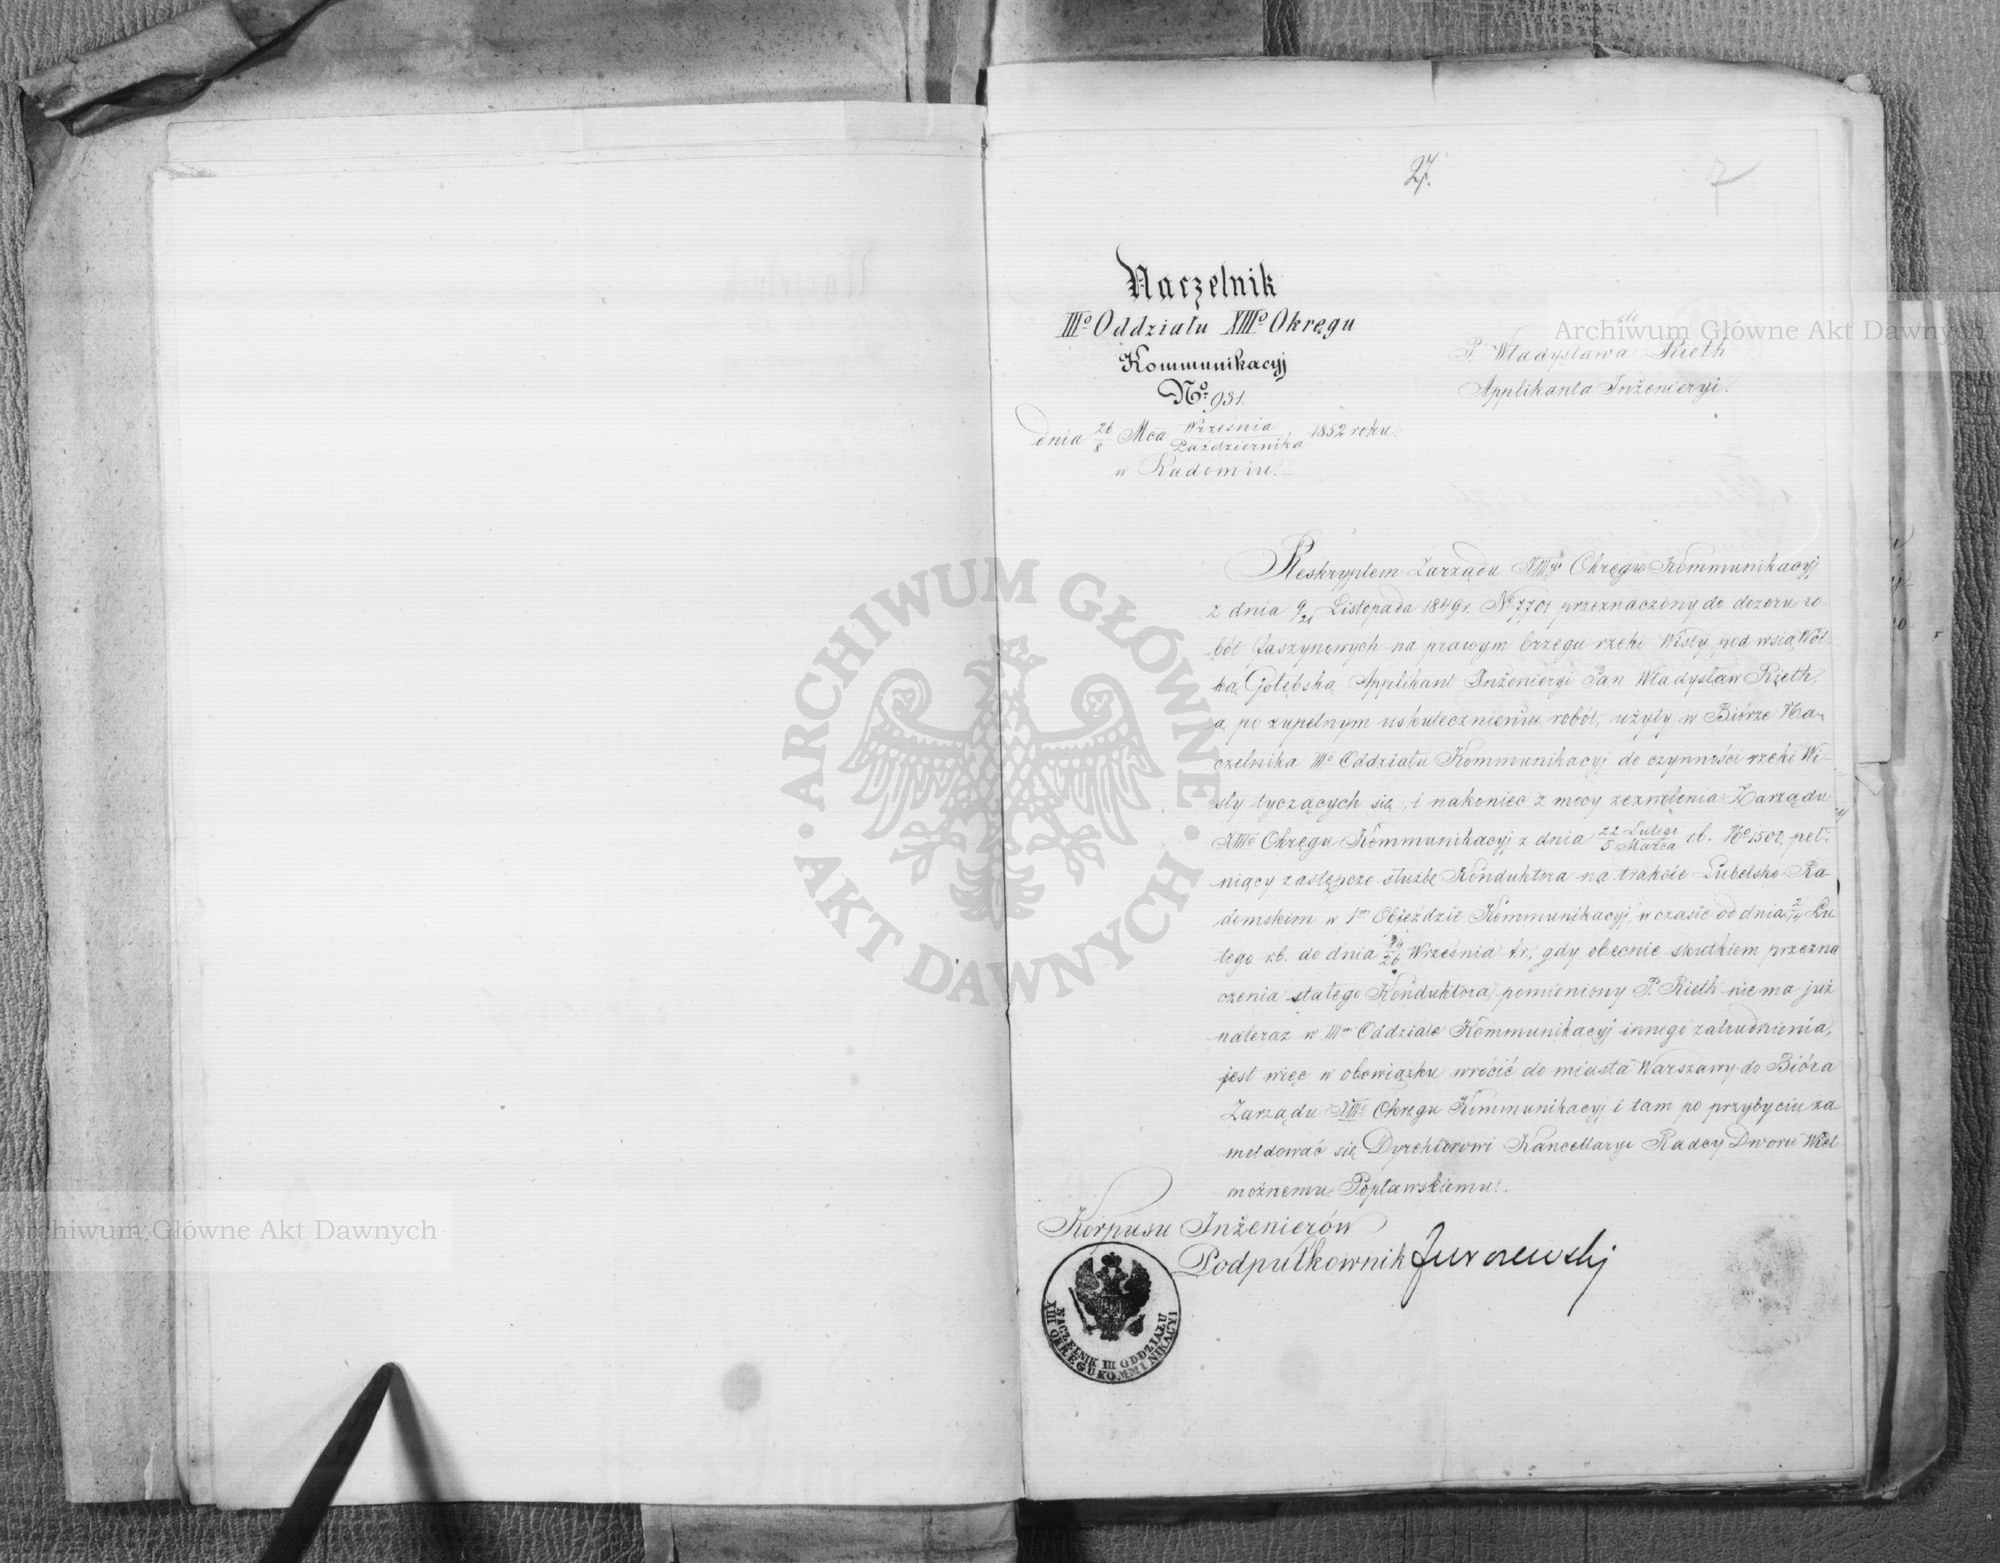 27.
7
Naczelnik
IIIo Oddziału XIIIo Okręgu
Kommunikacyj
No 931.
dnia 26/8 Mca Września/Października 1852 roku.
w Radomiu.
do
P. Władysława Rieth
Applikanta Inżenieryi.
Reskryptem Zarządu XIIIgo Okręgu Kommunikacyj
z dnia 9/21 Listopada 1849 r. No 7701 przeznaczony do dozoru ro-
bót faszynowych na prawym brzegu rzeki Wisły pod wsią Wól-
ką Gołębską Applikant Inżenieryi Jan Władysław Rieth,
a po zupełnym uskutecznieniu robót, użyty w Biórze Na-
czelnika IIIo Oddziału Kommunikacyj do czynności rzeki Wi-
sły tyczących się, i nakoniec z mocy zezwolenia Zarządu
XIIIo Okręgu Kommunikacyj z dnia 22 Lutego/5 Marca r.b. No 1501, peł-
niący zastępczo służbę Konduktora na trakcie Lubelsko-Ra-
domskim w 1m Objeździe Kommunikacyj, w czasie od dnia 2/14 Lu-
tego r.b. do dnia 14/26 Września t.r., gdy obecnie skutkiem przezna
czenia stałego Konduktora, pomieniony P. Rieth nie ma już
nateraz w IIIm Oddziale Kommunikacyj innego zatrudnienia,
jest więc w obowiązku wrócić do miasta Warszawy do Bióra
Zarządu XIIIo Okręgu Kommunikacyj i tam po przybyciu za-
meldować się Dyrektorowi Kancellaryi Radcy Dworu Wiel
możnemu Popławskiemu.
Korpusu Inżenierów
Podpułkownik Jurozewski
NACZELNIK III ODDZIAŁU
XIII OKRĘGU KOMMUNIKACYI
Archiwum Główne Akt Dawnych
ARCHIWUM GŁÓWNE
AKT DAWNYCH
Archiwum Główne Akt Dawnych